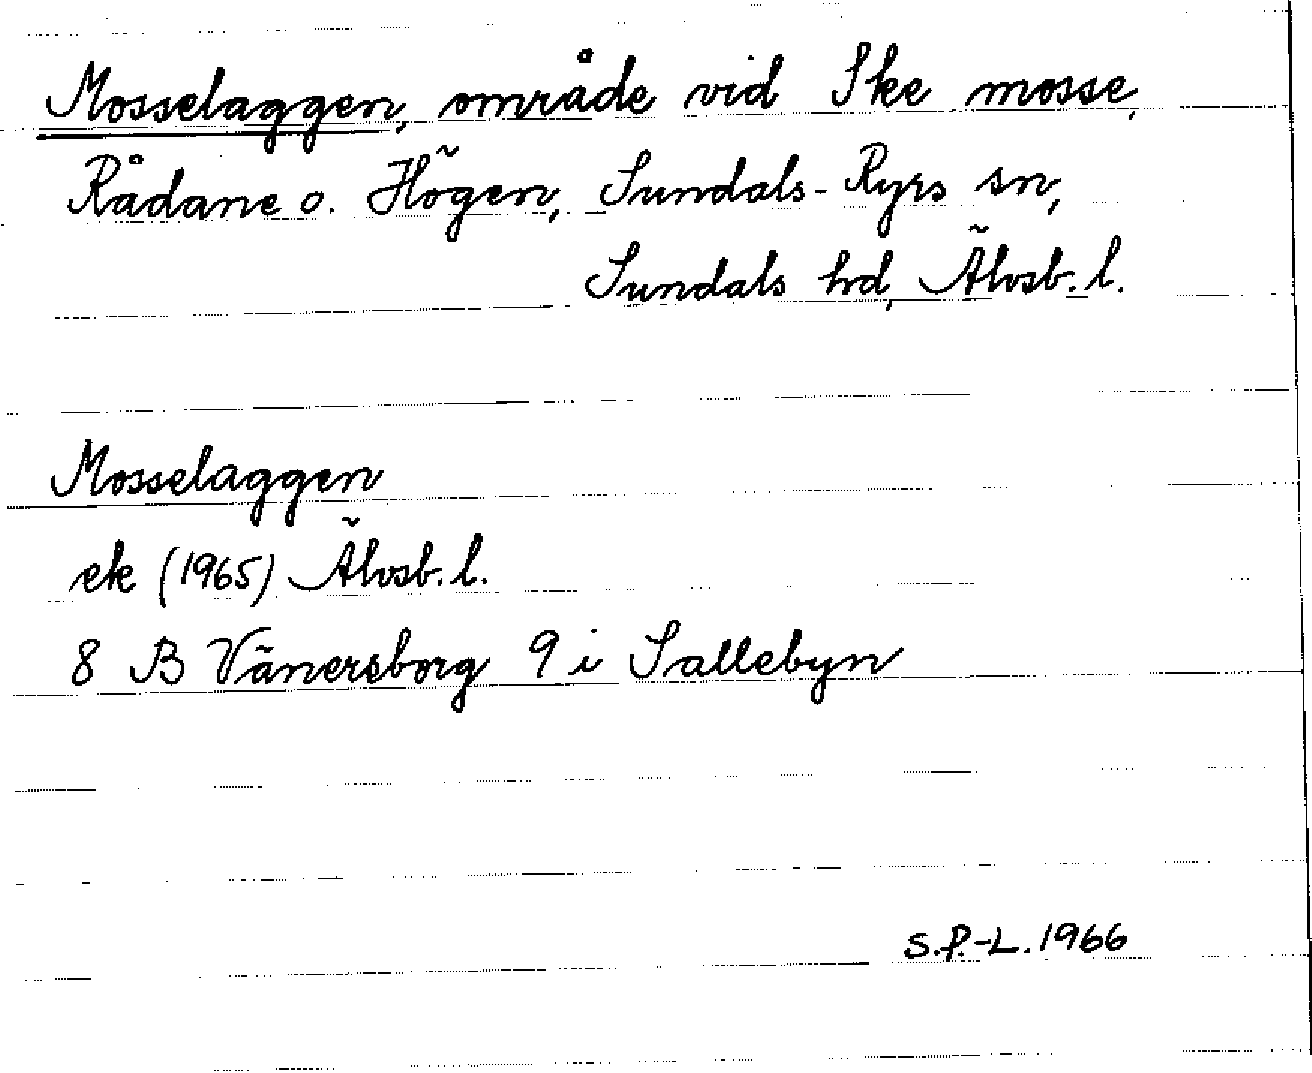 Mosselaggen, område vid Ske mosse,
Rådane o. Högen, Sundals-Ryrs sn,
Sundals hd, Älvsb. l.
Mosselaggen
ek (1965) Älvsb. l.
8 B Vänersborg 9 i Sallebyn
S.P.-L. 1966